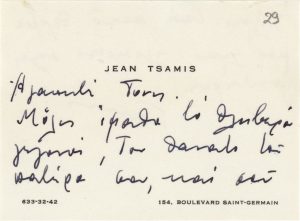 29
JEAN TSAMIS
Ἀγαπητή
Μόλις ἔμαθα τό
γεγονός, Τον θάνατο τοῦ
πατέρα σου, καί σοῦ
633-32-42 154, BOULEVARD SAINT-GERMAIN